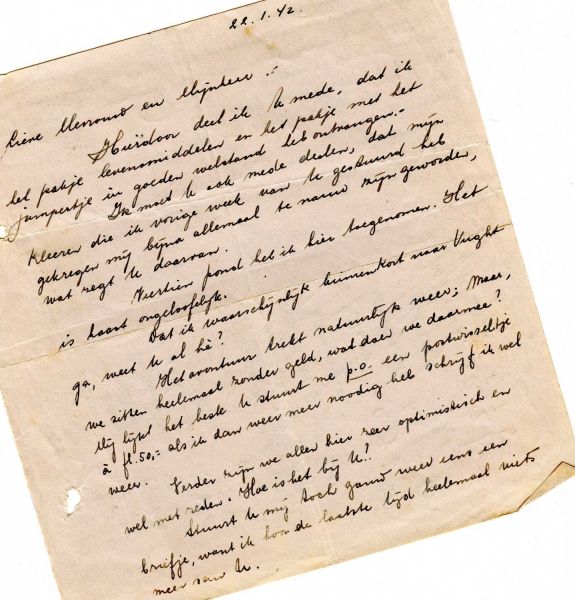 22.1.42.
Lieve Mevrouw en Mijnheer :-
Hierdoor deel ik U mede, dat ik
het pakje levensmiddelen en het pakje met het
jumpertje in goeden welstand heb ontvangen.-
Ik moet U ook mede deelen, dat mijn
kleeren die ik vorige week van U gestuurd heb
gekregen mij bijna allemaal te nauw zijn geworden,
wat zegt U daarvan.
Veertien pond heb ik hier toegenomen. Het
is haast ongeloofelijk.
Dat ik waarschijnlijk binnenkort naar Vught
ga, weet U al hè?
Het avontuur trekt natuurlijk weer; Maar,
we zitten heelemaal zonder geld, wat doen we daarmee?
Mij lijkt het beste U stuurt me p.o. een postwisseltje
à fl. 50,= als ik dan weer meer noodig heb schrijf ik wel
weer.
Verder zijn we allen hier zeer optimistisch en
wel met reden. Hoe is het bij U?
Stuurt U mij toch gauw weer eens een
briefje, want ik hoor de laatste tijd heelemaal niets
meer van U.